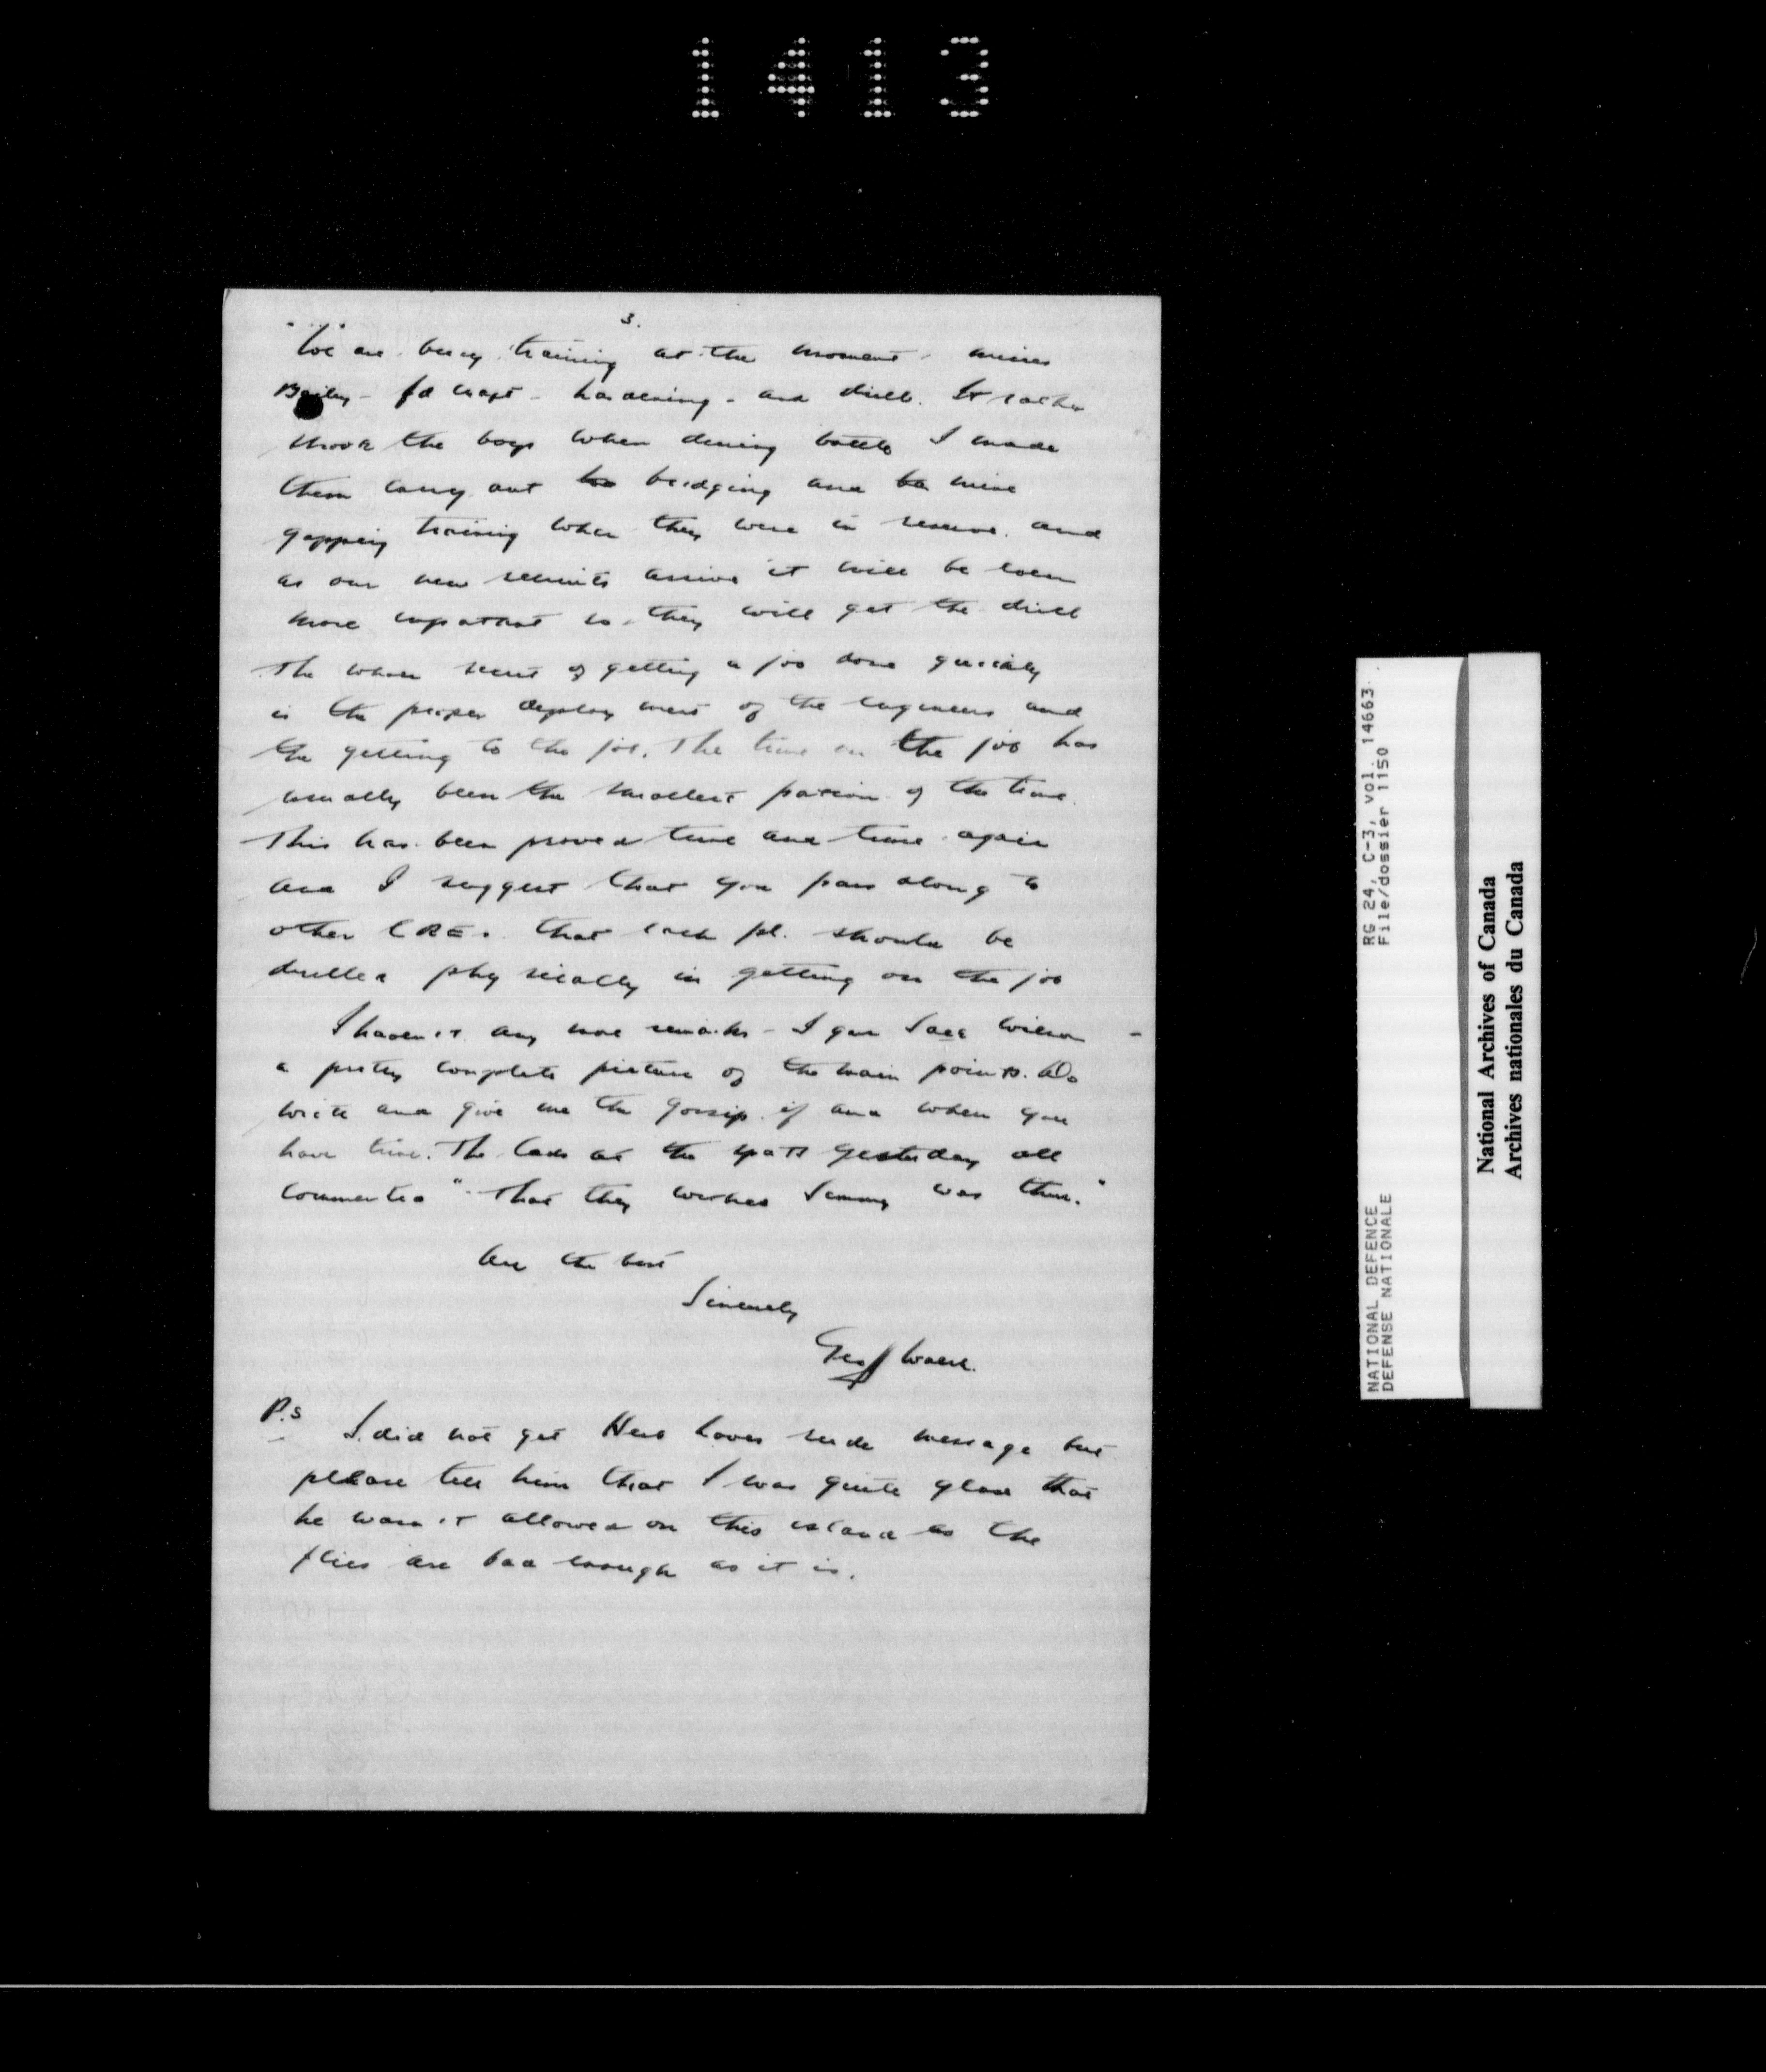 1413
3.
We are busy training at the moment - mines
Bailey - fd craft - hardening - and drill. It rather
shook the boys when during battle I made
them carry out bridging and mine
gapping training when they were in reserve and
as our new recruits arrive it will be even
more important so they will get the drill
The whole secret of getting a job done quickly
is the proper deployment of the engineers and
the getting to the job. The time on the job has
usually been the smallest portion of the time.
This has been proved time and time again
and I suggest that you pass along to
other CREs that each pl. should be
drilled physically in getting on the job
I haven't any more remarks - I gave Wilson -
a pretty complete picture of the main points. Do
write and give me the gossip if and when you
have time. The lads at the yesterday all
commented "That they wished was there."
All the best
Sincerely
Geoff Walsh.
P.S I did not get rude message but
please tell him that I was quite glad that
he wasn't allowed on this island as the
flies are bad enough as it is.
NATIONAL DEFENCE RG 24, C-3, vol. 14663
DEFENSE NATIONALE File/dossier 1150
National Archives of Canada
Archives nationales du Canada